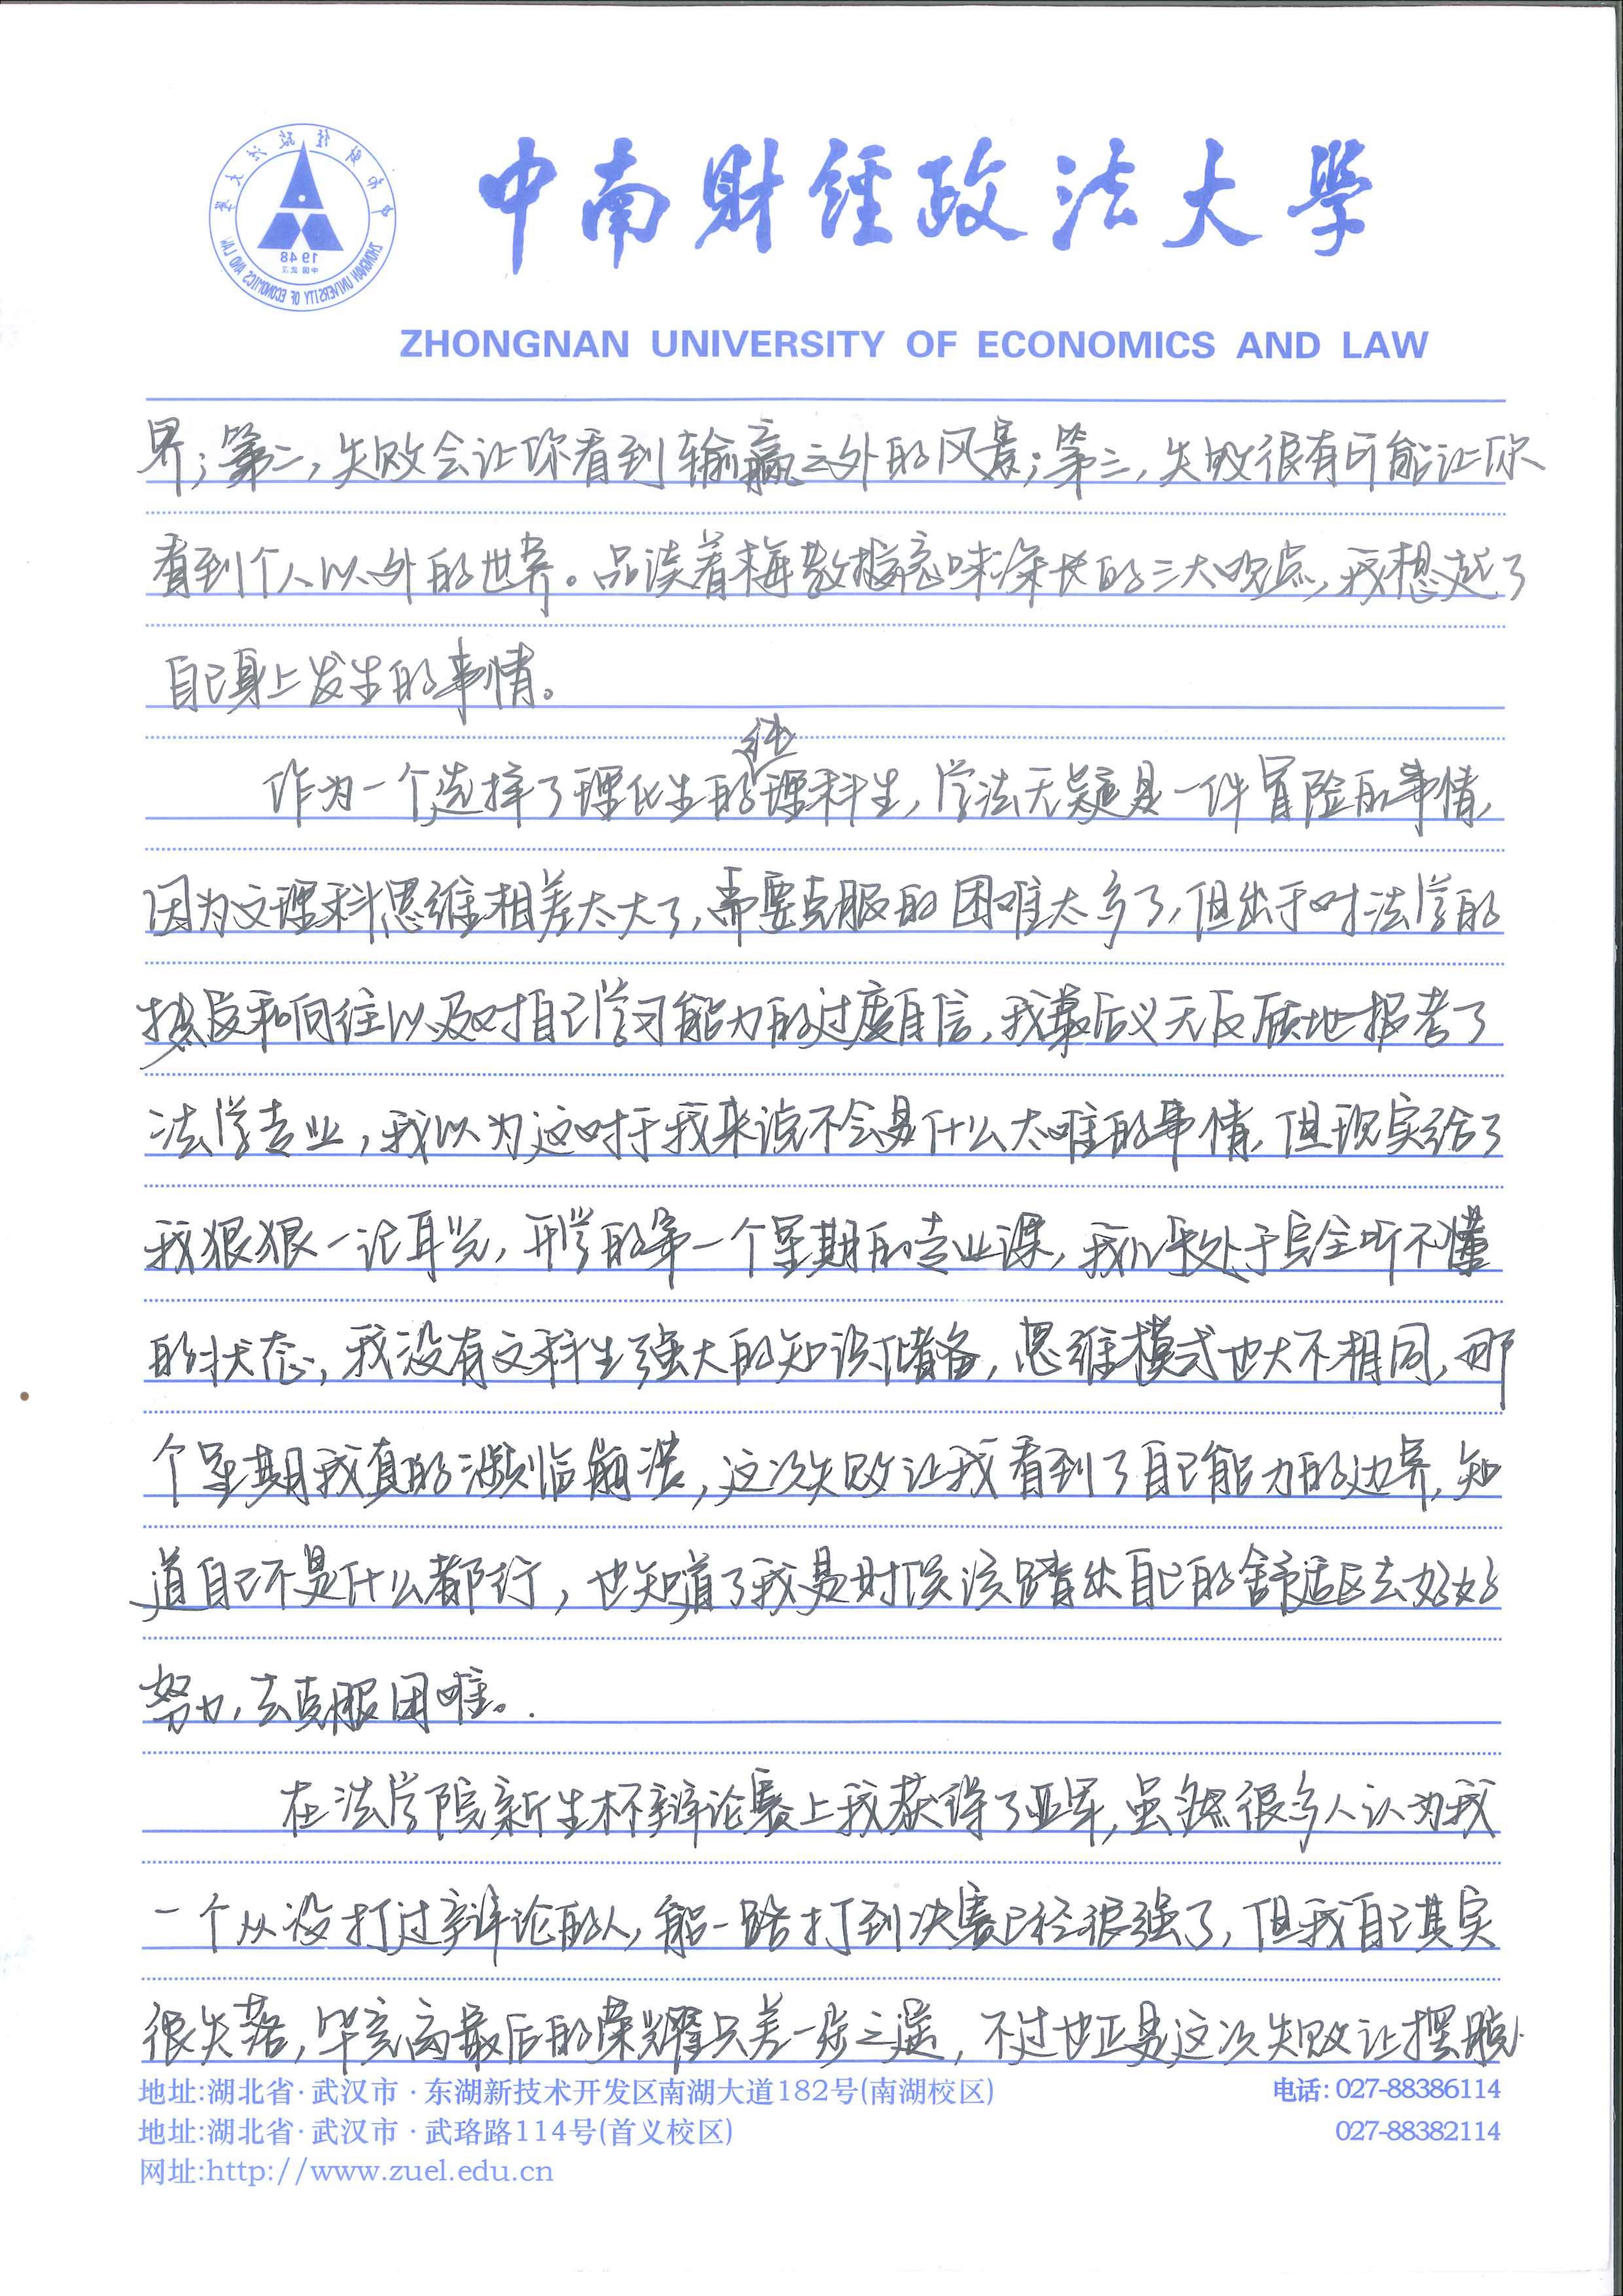 中南财经政法大学
1948
ZHONGNAN UNIVERSITY OF ECONOMICS AND LAW
ZHONGNAN UNIVERSITY OF ECONOMICS AND LAW
界；第二，失败会让你看到输赢之外的风景；第三，失败很有可能让你
看到个人以外的世界。品读着梅教授意味深长的三大观点，我想起了
自己身上发生的事情。
作为一个选择了理化生的纯理科生，学法无疑是一件冒险的事情，
因为文理科思维相差太大了，需要克服的困难太多了，但出于对法学的
热爱和向往以及对自己学习能力的过度自信，我最后义无反顾地报考了
法学专业，我以为这对于我来说不会是什么太难的事情，但现实给了
我狠狠一记耳光，开学的第一个星期的专业课，我几乎处于完全听不懂
的状态，我没有文科生强大的知识储备，思维模式也大不相同，那
个星期我真的濒临崩溃，这次失败让我看到了自己能力的边界，知
道自己不是什么都行，也知道了我是时候该踏出自己的舒适区去好好
努力，去克服困难。
在法学院新生杯辩论赛上我获得了亚军，虽然很多人认为我
一个从没打过辩论的人，能一路打到决赛已经很强了，但我自己其实
很失落，毕竟离最后的荣耀只差一步之遥，不过也正是这次失败让摆脱
地址:湖北省·武汉市·东湖新技术开发区南湖大道182号(南湖校区) 电话: 027-88386114
地址:湖北省·武汉市·武珞路114号(首义校区) 027-88382114
网址:http://www.zuel.edu.cn